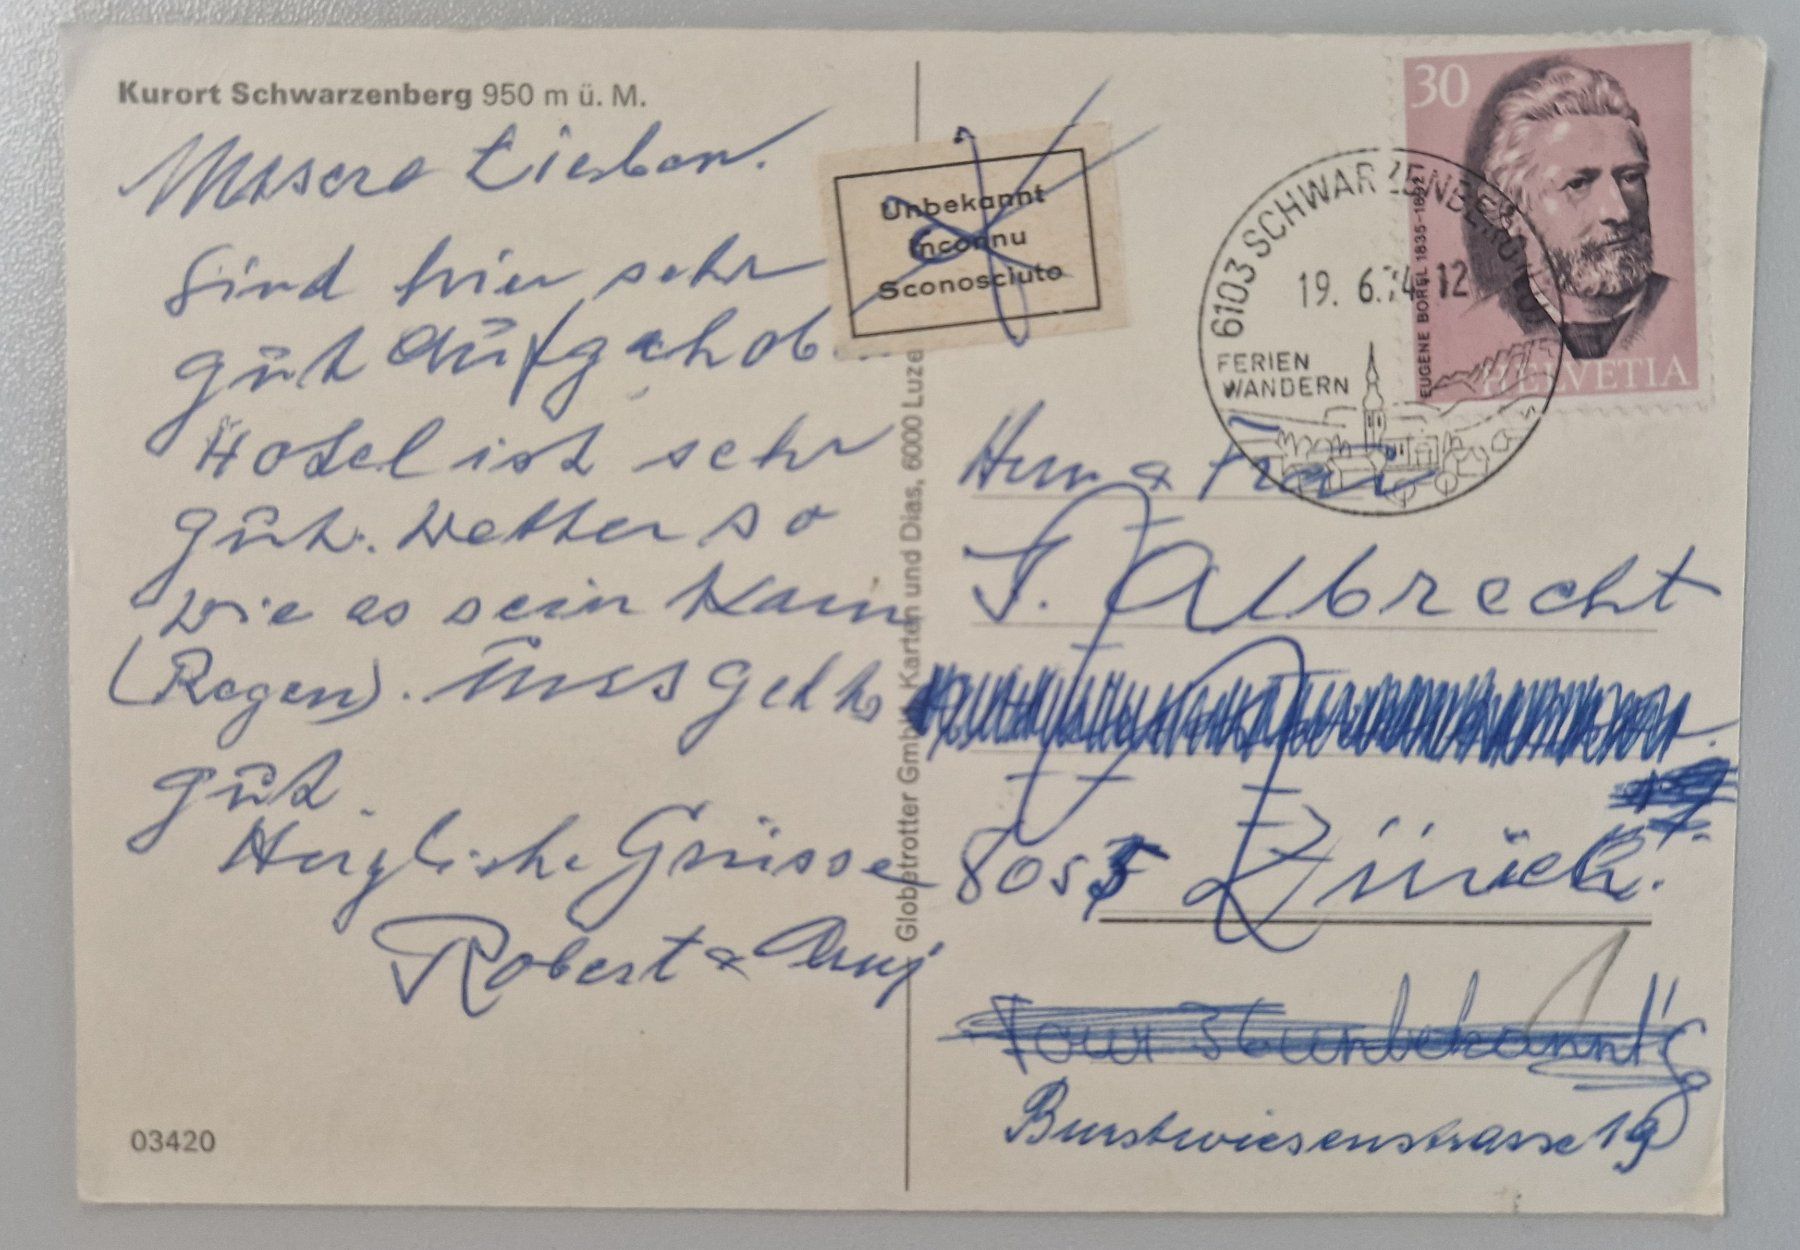 Kurort Schwarzenberg 950 m ü. M.
Unsere Lieben.
Sind hier sehr
gut aufgehob
Hotel ist sehr
gut. Wetter so
wie es sein kann
(Regen). Uns geht es
gut.
Herzliche Grüsse
Robert &
03420
Globetrotter GmbH, Karten und Dias, 6000 Luze
Unbekannt
Inconnu
Sconosciuto
30
EUGENE BOREL 1835-1892
HELVETIA
6103 SCHWARZENBERG
19. 6.74 12
FERIEN
WANDERN
Herr & Frau
J. Albrecht
8055 Zürich.
Tour 36 unbekannt
Burstwiesenstrasse 19